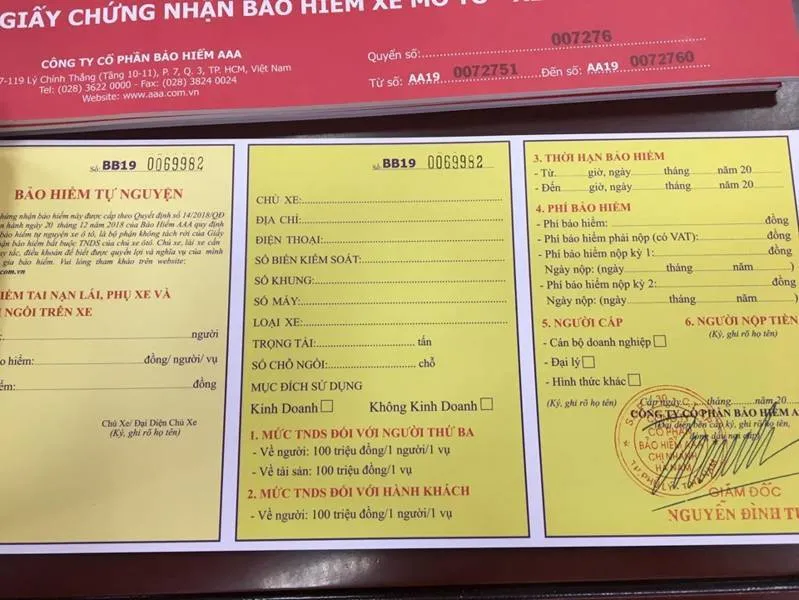 GIẤY CHỨNG NHẬN BẢO HIỂM XE MÔ TÔ -
CÔNG TY CỔ PHẦN BẢO HIỂM AAA
7-119 Lý Chính Thắng (Tầng 10-11), P. 7, Q. 3, TP. HCM, Việt Nam
Tel: (028) 3622 0000 - Fax: (028) 3824 0024
Website: www.aaa.com.vn
Quyển số: 007276
Từ số: AA19 0072751 Đến số: AA19 0072760
Số: BB19 0069982
BẢO HIỂM TỰ NGUYỆN
hứng nhận bảo hiểm này được cấp theo Quyết định số 14/2018/QĐ
n hành ngày 20 tháng 12 năm 2018 của Bảo Hiểm AAA quy định
bảo hiểm tự nguyện xe ô tô, là bộ phận không tách rời của Giấy
hận bảo hiểm bắt buộc TNDS của chủ xe ôtô. Chủ xe, lái xe cần
y tắc, điều khoản để biết được quyền lợi và nghĩa vụ của mình
gia bảo hiểm. Vui lòng tham khảo trên website:
.com.vn
IỂM TAI NẠN LÁI, PHỤ XE VÀ
NGỒI TRÊN XE
: người
ảo hiểm: đồng/ người/ vụ
ểm: đồng
Chủ Xe/ Đại Diện Chủ Xe
(Ký, ghi rõ họ tên)
Số: BB19 0069982
CHỦ XE:
ĐỊA CHỈ:
ĐIỆN THOẠI:
SỐ BIỂN KIỂM SOÁT:
SỐ KHUNG:
SỐ MÁY:
LOẠI XE:
TRỌNG TẢI: tấn
SỐ CHỖ NGỒI: chỗ
MỤC ĐÍCH SỬ DỤNG
Kinh Doanh □ Không Kinh Doanh □
1. MỨC TNDS ĐỐI VỚI NGƯỜI THỨ BA
- Về người: 100 triệu đồng/1 người/1 vụ
- Về tài sản: 100 triệu đồng/1 vụ
2. MỨC TNDS ĐỐI VỚI HÀNH KHÁCH
- Về người: 100 triệu đồng/1 người/1 vụ
3. THỜI HẠN BẢO HIỂM
- Từ giờ, ngày tháng năm 20
- Đến giờ, ngày tháng năm 20
4. PHÍ BẢO HIỂM
- Phí bảo hiểm: đồng
- Phí bảo hiểm phải nộp (có VAT): đồng
- Phí bảo hiểm nộp kỳ 1: đồng
Ngày nộp: (ngày tháng năm )
- Phí bảo hiểm nộp kỳ 2: đồng
Ngày nộp: (ngày tháng năm )
5. NGƯỜI CẤP 6. NGƯỜI NỘP TIỀN
(Ký, ghi rõ họ tên)
- Cán bộ doanh nghiệp □
- Đại lý □
- Hình thức khác □
(Ký, ghi rõ họ tên) Cấp ngày tháng năm 20
CÔNG TY CỔ PHẦN BẢO HIỂM A
(Đại diện bên cấp ký, ghi rõ họ tên,
đóng dấu nơi cấp)
CỔ PHẦN
BẢO HIỂM AAA
CHI NHÁNH
HÀ NAM
GIÁM ĐỐC
NGUYỄN ĐÌNH T